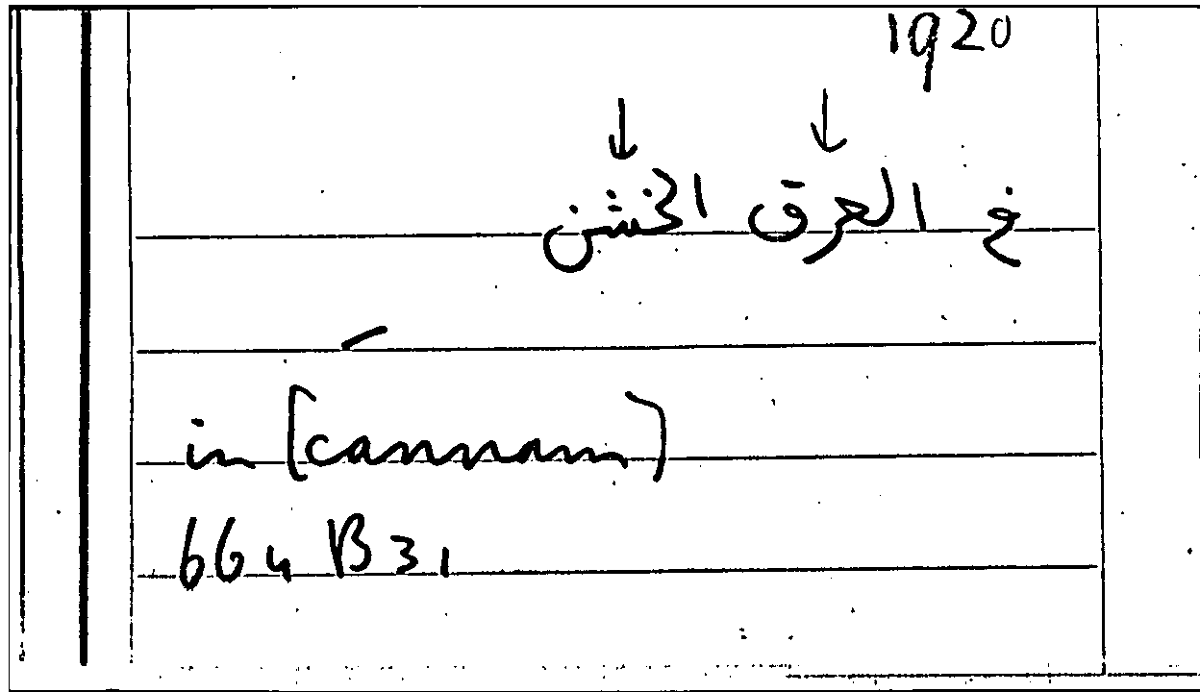 1920
↓ ↓
في العرق الخشن
in (cannam)
664 B31